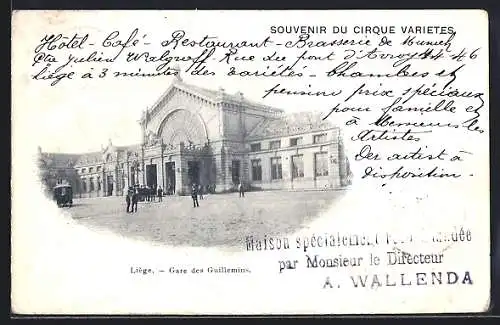 SOUVENIR DU CIRQUE VARIETES
Hôtel - Café - Restaurant - Brasserie de Munich
Julien Walgraff Rue du pont d'Avroy 44 46
liège à 3 minutes des variétés - chambres et
pension prix spéciaux
pour famille et
à Messieurs les
Artistes
artist à
disposition -
Liège. - Gare des Guillemins.
Maison spécialement
par Monsieur le Directeur
A. WALLENDA